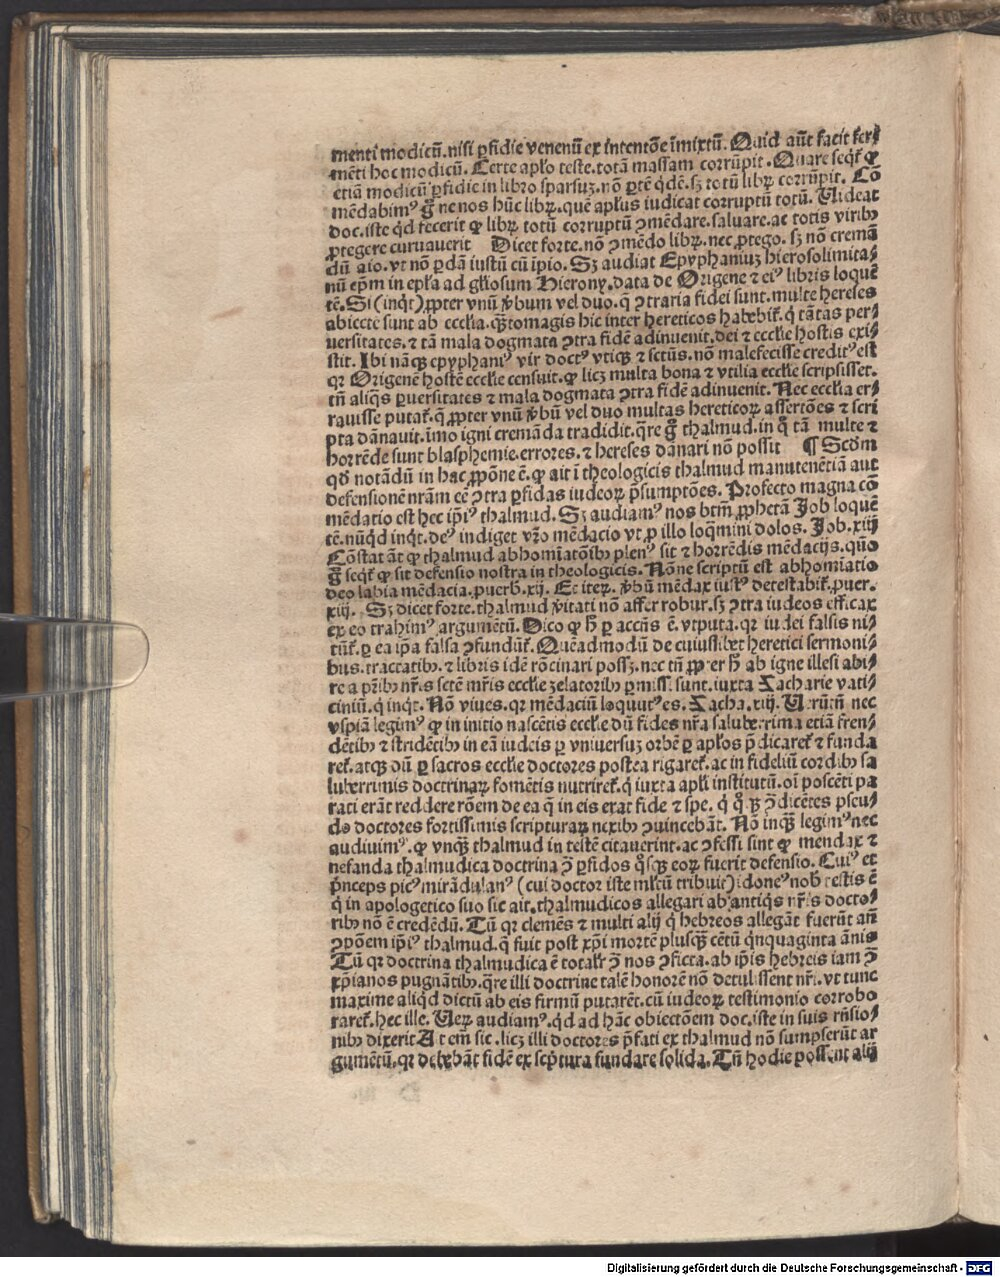 menti modicū. nisi ꝑfidie venenū ex intentōe īmixtū. Quid aūt facit fer⸗
mēti hoc modicū. Certe apło teste. totā massam corrūpit. Quare seqr̄ ꝙ
etiā modicū ꝑfidie in libro sparsuꝫ. nō ꝑtē qdē. sꝫ totū libꝝ corrūpit. Cō
mēdabimꝰ g̊ ne nos hūc libꝝ. quē apłus iudicat corruptū totū. Uideat
doc. iste qd fecerit ꝙ libꝝ totū corruptū ꝯmēdare. saluare. ac totis viribꝫ
ꝓtegere curuauerit Dicet forte. nō ꝯmēdo libꝝ. nec ꝓtego. sꝫ nō cremā
dū aio. vt nō ꝑdā iustū cū īpio. Sꝫ audiat Epyphaniuꝫ hierosolimita⸗
nū epm̄ in epła ad głiosum Hierony. data de Origene ⁊ eiꝰ libris loquē
tē. Si (inqt) ꝓpter vnū v̄bum vel duo. q̄ ꝯtraria fidei sunt. multe hereses
abiecte sunt ab ecclia. qꝫtomagis hic inter hereticos habebit̄. q̇ tātas per
uersitates. ⁊ tā mala dogmata ꝯtra fidē adinuenit. dei ⁊ ecclie hostis exi⸗
stit. Ibi nāqꝫ epyphaniꝰ vir doctꝰ vtiqꝫ ⁊ sctūs. nō malefecisse creditꝰ est
qꝛ Origenē hostē ecclie censuit. ꝙ licꝫ multa bona ⁊ vtilia ecclie scripsisset.
tn̄ aliqs ꝑuersitates ⁊ mala dogmata ꝯtra fidē adinuenit. Nec ecclia er⸗
rauisse putat̄. q̄ ꝓpter vnū v̄bū vel duo multas hereticoꝝ assertōes ⁊ scri
pta dānauit. īmo igni cremāda tradidit. qre g̊ thalmud. in q̊ tā multe ⁊
horrēde sunt blasphemie. errores. ⁊ hereses dānari nō possit ¶ Scd̄m
qd̄ notādū in hac ꝓpōne ē. ꝙ ait ī theologicis thalmud manutenētiā aut
defensionē nr̄am eē ꝯtra ꝑfidas iudeoꝝ p̄sumptōes. Profecto magna cō
mēdatio est hec ip̄iꝰ thalmud. Sꝫ audiamꝰ nos btm̄ ꝓphetā Job loquē
tē. nūqd inqt. deꝰ indiget vr̄o mēdacio vt ꝓ illo loq̄mini dolos. Job. xiij
Cōstat āt ꝙ thalmud abhomīatōibꝫ plenꝰ sit ⁊ horrēdis mēdacijs. quō
g̊ seqt̄ ꝙ sit defensio nostra in theologicis. Nōne scriptū est abhomīatio
deo labia mēdacia. puerb. xij. Et iteꝝ. v̄bū mēdax iustꝰ detestabit̄. puer.
xiij. Sꝫ dicet forte. thalmud v̄itati nō affer robur. sꝫ ꝯtra iudeos efficax
ex eo trahimꝰ argumētū. Dico ꝙ h̄ ꝑ accn̄s ē. vtputa. qꝛ iudei falsis ni⸗
tūt̄. ꝑ ea ip̄a falsa ꝯfundūt̄. Quēadmodū de cuiuslibet heretici sermoni⸗
bus. tractatibꝫ. ⁊ libris idē rōcinari possꝫ. nec tn̄ ꝓpter h̄ ab igne illesi abi⸗
re a pr̄ibꝫ nr̄is sctē mr̄is ecclie zelatoribꝫ ꝑmissi sunt. iuxta Zacharie vati⸗
ciniū. q̇ inqt. Nō viues. qꝛ mēdaciū loquutꝰ es. Zacha. xiij. Uerūtn̄ nec
vspiā legimꝰ ꝙ in initio nascētis ecclie dū fides nr̄a saluberrima etiā fren⸗
dētibꝫ ⁊ stridētibꝫ in eā iudeis ꝑ vniuersuꝫ orbē ꝑ apłos p̄dicaret̄ ⁊ funda
ret̄. atqꝫ dū ꝑ sacros ecclie doctores postea rigaret̄. ac in fideliū cordibꝫ sa
luberrimis doctrinaꝝ fomētis nutriret̄. q̇ iuxta apłi institutū. oī poscēti pa
rati erāt reddere rōem de ea q̄ in eis erat fide ⁊ spe. q̇ q̊qꝫ ꝯ̄dicētes pseu⸗
do doctores fortissimis scripturaꝝ nexibꝫ ꝯuincebāt. Nō inqꝫ legimꝰ nec
audiuimꝰ. ꝙ vnqꝫ thalmud in testē citauerint. ac ꝯfessi sint ꝙ mendax ⁊
nefanda thalmudica doctrina ꝯ̄ ꝑfidos q̊sqꝫ eoꝝ fuerit defensio. Cuiꝰ et
p̄nceps picꝰ mirādulanꝰ (cui doctor iste młtū tribuit) idoneꝰ nob̄ testis ē
q̇ in apologetico suo sic ait. thalmudicos allegari ab antiqs nr̄is docto⸗
ribꝫ nō ē credēdū. Tū qꝛ clemēs ⁊ multi alij q̇ hebreos allegāt fuerūt añ
ꝯpōem ip̄iꝰ thalmud. q̄ fuit post xp̄i mortē plusqꝫ cētū qnquaginta ānis
Tū qꝛ doctrina thalmudica ē totalr̄ ꝯ̄ nos ꝯficta. ab ip̄is hebreis iam ꝯ̄
xp̄ianos pugnātibꝫ. qre illi doctrine talē honorē nō detulissent nr̄i. vt tunc
maxime aliqd dictū ab eis firmū putarēt. cū iudeoꝝ testimonio corrobo
raret̄. hec ille. Ueꝝ audiamꝰ. qd ad hāc obiectōem doc. iste in suis rn̄sio⸗
nibꝫ dixerit At em̄ sic. licꝫ illi doctores p̄fati ex thalmud nō sumpserūt ar
gumētū. qꝛ debebāt fidē ex scp̄tura fundare solida. Tn̄ hodie possent alij
Digitalisierung gefördert durch die Deutsche Forschungsgemeinschaft - DFG